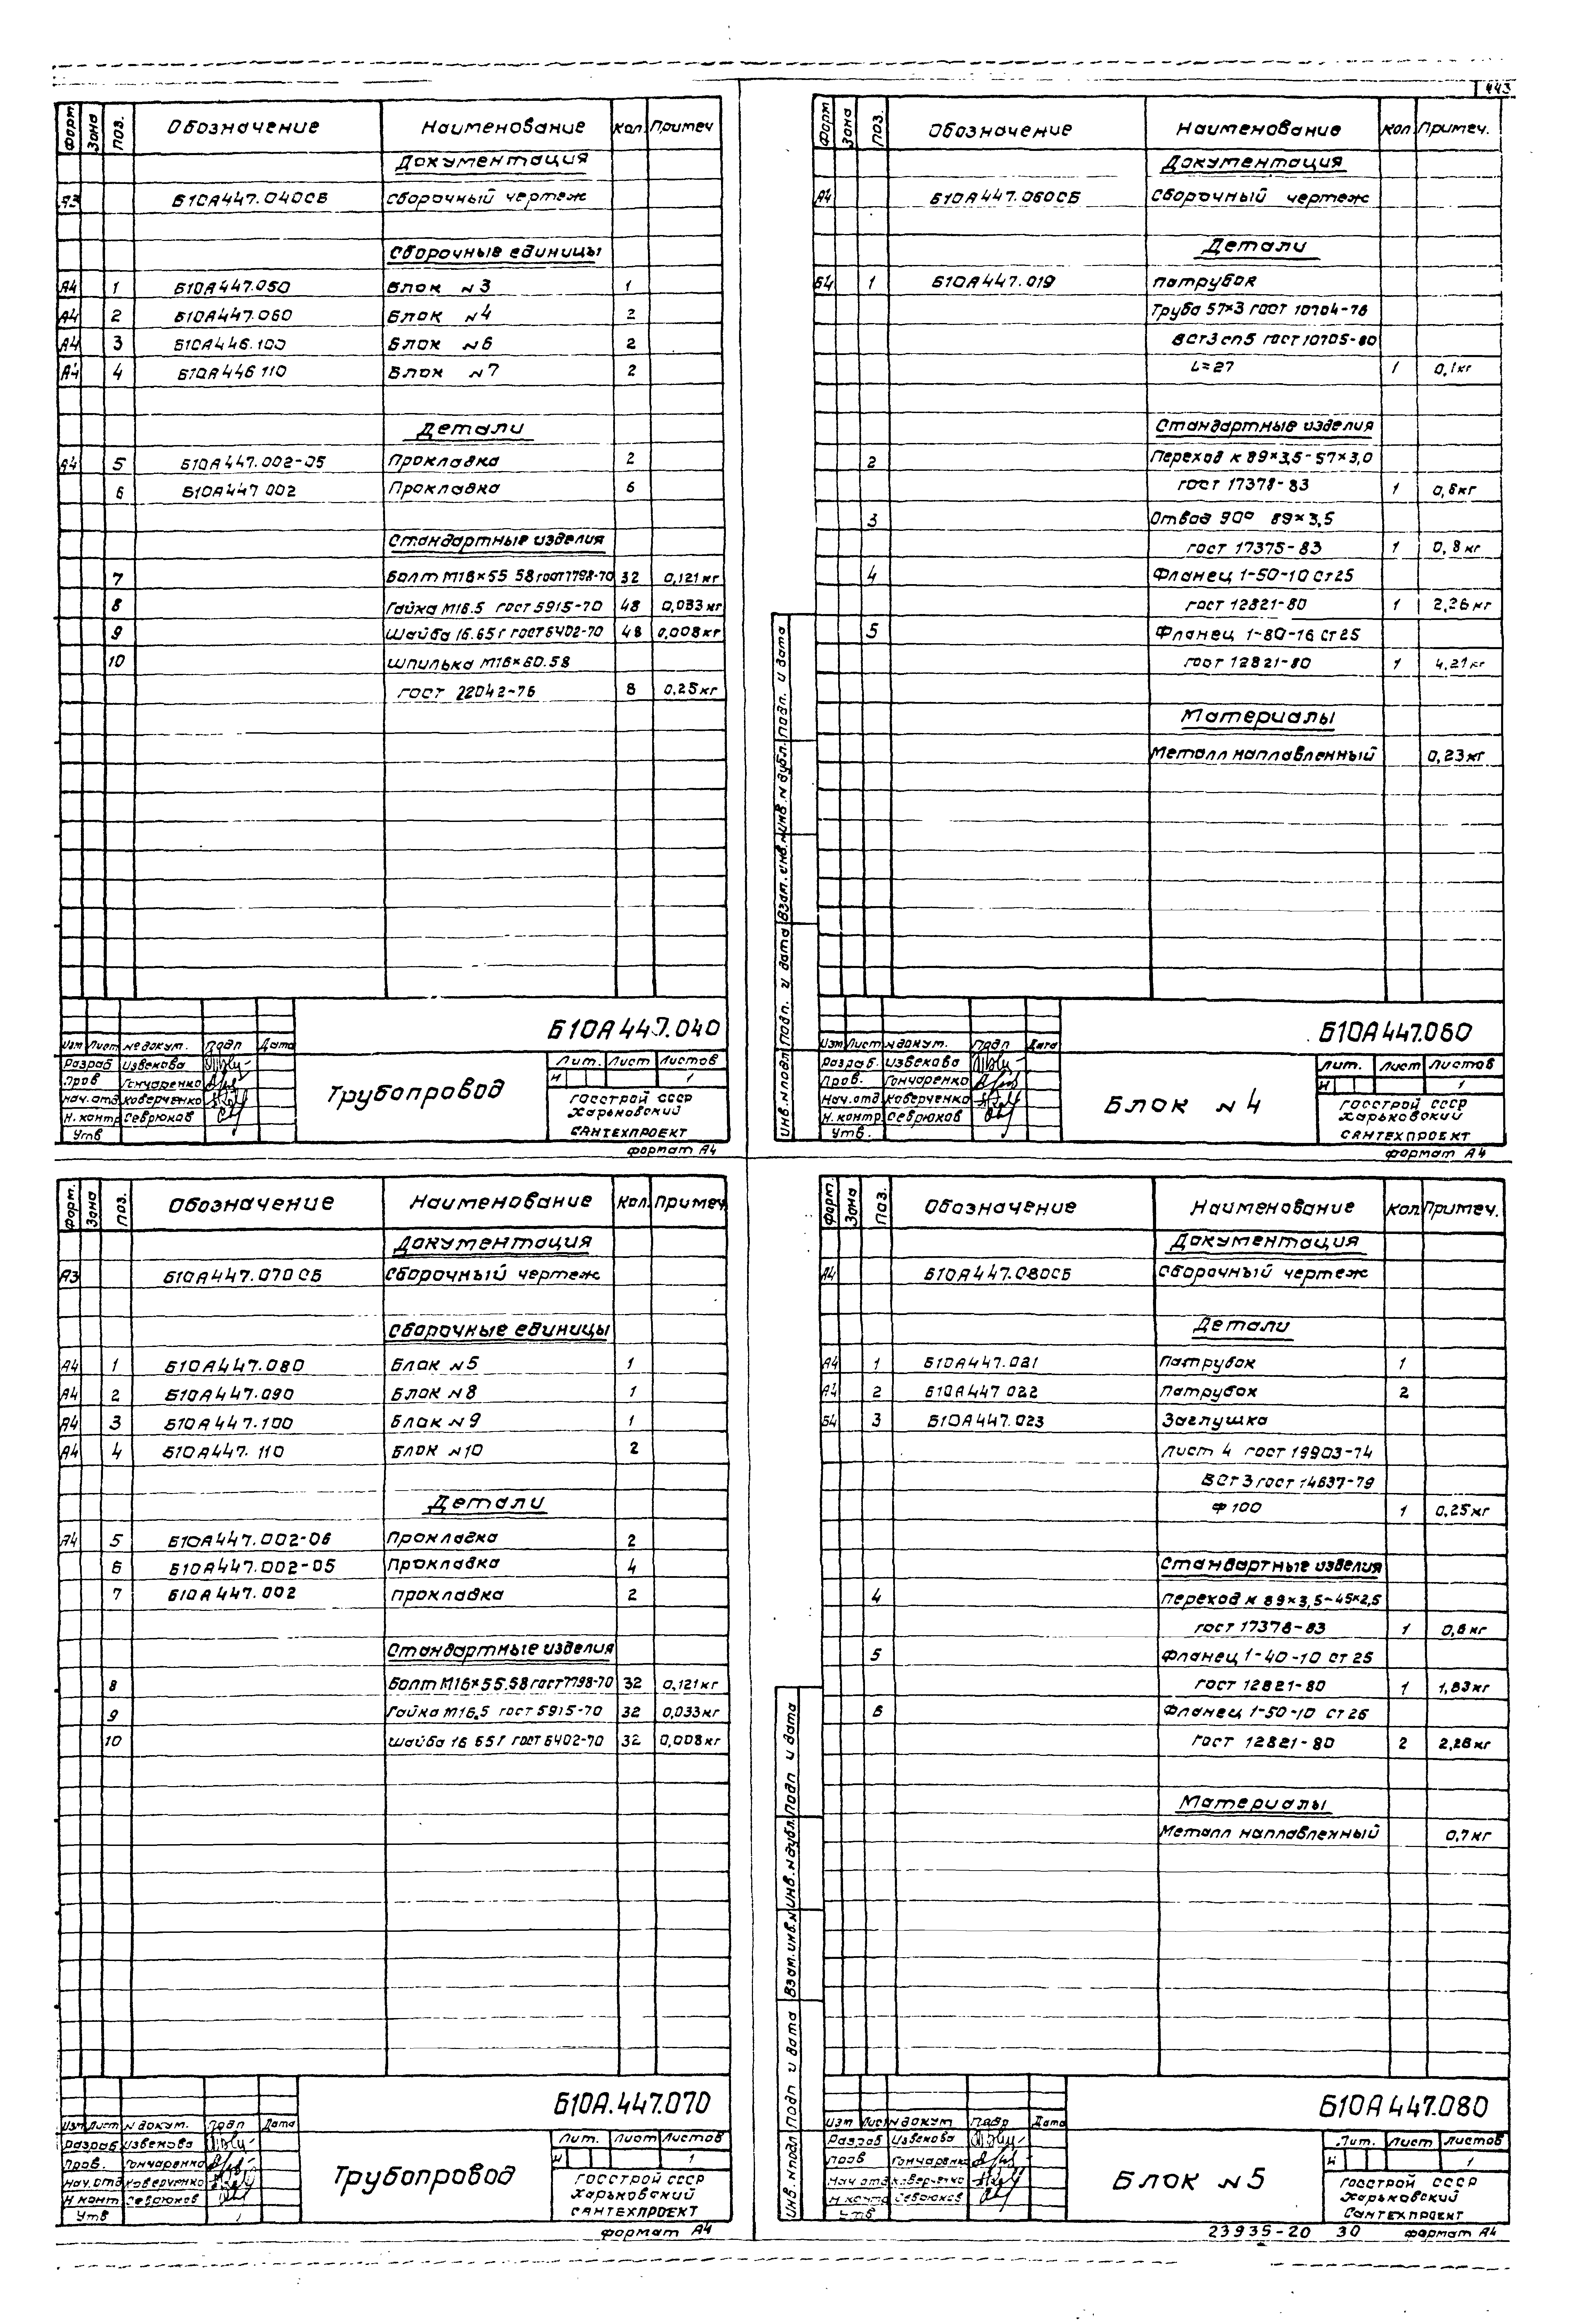 443
Форм Зона Поз. Обозначение Наименование Кол. Примеч
Документация
А3 Б10А447.040СБ Сборочный чертеж
Сборочные единицы
А4 1 Б10А447.050 Блок №3 1
А4 2 Б10А447.060 Блок №4 2
А4 3 Б10А446.100 Блок №6 2
А4 4 Б10А446 110 Блок №7 2
Детали
А4 5 Б10А447.002-05 Прокладка 2
6 Б10А447 002 Прокладка 6
Стандартные изделия
7 Болт М16×55 58 гост 7798-70 32 0,121кг
8 Гайка М16.5 гост 5915-70 48 0,033кг
9 Шайба 16.65г гост 6402-70 48 0,008кг
10 Шпилька М16×60.58
гост 22042-76 8 0,25кг
Б10А447.040
Изм Лист № докум. Подп Дата
Разраб Извекова
Пров Гончаренко
Нач.отд Коверченко
Н.контр Севрюков
Утв
Трубопровод
Лит. Лист Листов
И 1
ГОССТРОЙ СССР
Харьковский
САНТЕХПРОЕКТ
формат А4
Форм Зона Поз. Обозначение Наименование Кол Примеч.
Документация
А4 Б10А447.060СБ Сборочный чертеж
Детали
Б4 1 Б10А447.019 Патрубок
Труба 57×3 гост 10704-76
ВСт3сп5 гост 10705-80
L=27 1 0,1кг
Стандартные изделия
2 Переход К 89×3,5-57×3,0
гост 17378-83 1 0,6кг
3 Отвод 90° 89×3,5
гост 17375-83 1 0,8кг
4 Фланец 1-50-10 Ст25
гост 12821-80 1 2,26кг
5 Фланец 1-80-16 Ст25
гост 12821-80 1 4,21кг
Материалы
Металл наплавленный 0,23кг
Инв.№подл Подп. и дата Взам.инв.№ Инв.№дубл. Подп. и дата
Б10А447.060
Изм Лист № докум. Подп Дата
Разраб. Извекова
Пров. Гончаренко
Нач.отд Коверченко
Н.контр Севрюков
Утв.
Блок №4
Лит. Лист Листов
И 1
ГОССТРОЙ СССР
Харьковский
САНТЕХПРОЕКТ
формат А4
Форм. Зона Поз. Обозначение Наименование Кол. Примеч.
Документация
А3 Б10А447.070СБ Сборочный чертеж
Сборочные единицы
А4 1 Б10А447.080 Блок №5 1
А4 2 Б10А447.090 Блок №8 1
А4 3 Б10А447.100 Блок №9 1
А4 4 Б10А447.110 Блок №10 2
Детали
А4 5 Б10А447.002-06 Прокладка 2
6 Б10А447.002-05 Прокладка 4
7 Б10А447.002 Прокладка 2
Стандартные изделия
8 Болт М16×55.58 гост 7798-70 32 0,121кг
9 Гайка М16.5 гост 5915-70 32 0,033кг
10 Шайба 16 65Г гост 6402-70 32 0,008кг
Б10А.447.070
Изм Лист № докум. Подп Дата
Разраб Извекова
Пров. Гончаренко
Нач.отд Коверченко
Н конт Севрюков
Утв
Трубопровод
Лит. Лист Листов
И 1
ГОССТРОЙ СССР
Харьковский
САНТЕХПРОЕКТ
формат А4
Форм. Зона Поз. Обозначение Наименование Кол Примеч.
Документация
А4 Б10А447.080СБ Сборочный чертеж
Детали
А4 1 Б10А447.021 Патрубок 1
А4 2 Б10А447 022 Патрубок 2
Б4 3 Б10А447.023 Заглушка
Лист 4 гост 19903-74
ВСт 3 гост 14637-79
Ф 100 1 0,25кг
Стандартные изделия
4 Переход К 89×3,5-45×2,5
гост 17378-83 1 0,6кг
5 Фланец 1-40-10 ст 25
гост 12821-80 1 1,83кг
6 Фланец 1-50-10 ст 25
гост 12821-80 2 2,26кг
Материалы
Металл наплавленный 0,7кг
Инв.№подл Подп и дата Взам.инв.№ Инв.№дубл. Подп и дата
Б10А447.080
Изм Лист № докум Подп Дата
Разраб Извекова
Пров Гончаренко
Нач отд Коверченко
Н контр Севрюков
Утв
Блок №5
Лит. Лист Листов
И 1
ГОССТРОЙ СССР
Харьковский
САНТЕХПРОЕКТ
23935-20 30 формат А4